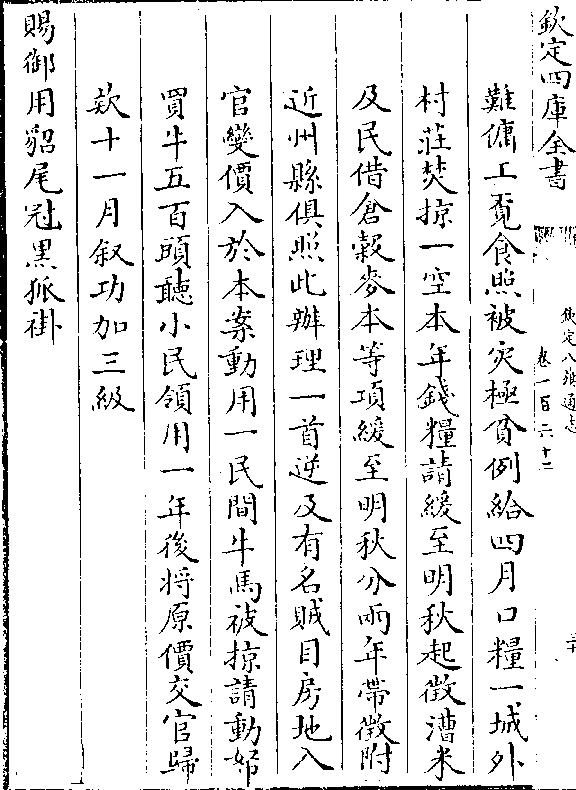 欽定四庫全書
欽定八旗通志
卷一百六十二
難傭工覓食照被灾極貧例給四月口糧一城外
村莊焚掠一空本年錢糧請緩至明秋起徵漕米
及民借倉穀麥本等項緩至明秋分兩年帶徵附
近州縣俱照此辦理一首逆及有名賊目房地入
官變價入於本案動用一民間牛馬被掠請動帑
買牛五百頭聽小民領用一年後將原價交官歸
欵十一月叙功加三級
賜御用貂尾冠黑狐褂